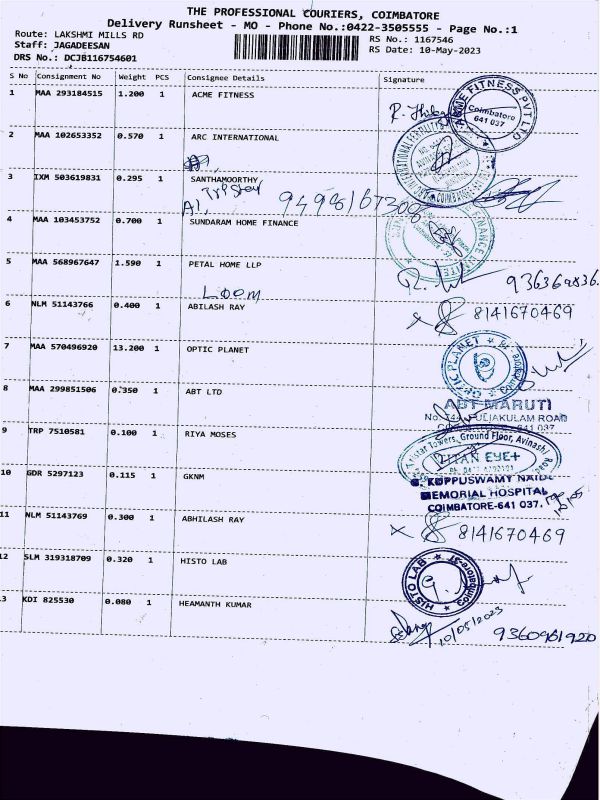 THE PROFESSIONAL COURIERS, COIMBATORE
Delivery Runsheet - MO - Phone No.:0422-3505555 - Page No.:1
Route: LAKSHMI MILLS RD
RS No.: 1167546
Staff: JAGADEESAN
RS Date: 10-May-2023
DRS No.: DCJB116754601
S No Consignment No Weight PCS Consignee Details Signature
1 MAA 293184515 1.200 1 ACME FITNESS
ME FITNESS PVT LTD
Coimbatore
641 037
2 MAA 102653352 0.570 1 ARC INTERNATIONAL
3 IXM 503619831 0.295 1 SANTHAMOORTHY
A1,
4 MAA 103453752 0.700 1 SUNDARAM HOME FINANCE
5 MAA 568967647 1.590 1 PETAL HOME LLP
LOOM
6 NLM 51143766 0.400 1 ABILASH RAY
8141670469
7 MAA 570496920 13.200 1 OPTIC PLANET
OPTIC PLANET
Coimbatore
8 MAA 299851506 0.350 1 ABT LTD
ABT MARUTI
9 TRP 7510581 0.100 1 RIYA MOSES
Tristar Towers, Ground Floor, Avinashi Road
TITAN EYE+
10 GDR 5297123 0.115 1 GKNM
KUPPUSWAMY NAIDU
MEMORIAL HOSPITAL
COIMBATORE-641 037.
11 NLM 51143769 0.300 1 ABHILASH RAY
8141670469
12 SLM 319318709 0.320 1 HISTO LAB
HISTO LAB
Coimbatore-37
3 KDI 825530 0.080 1 HEAMANTH KUMAR
10/05/2023